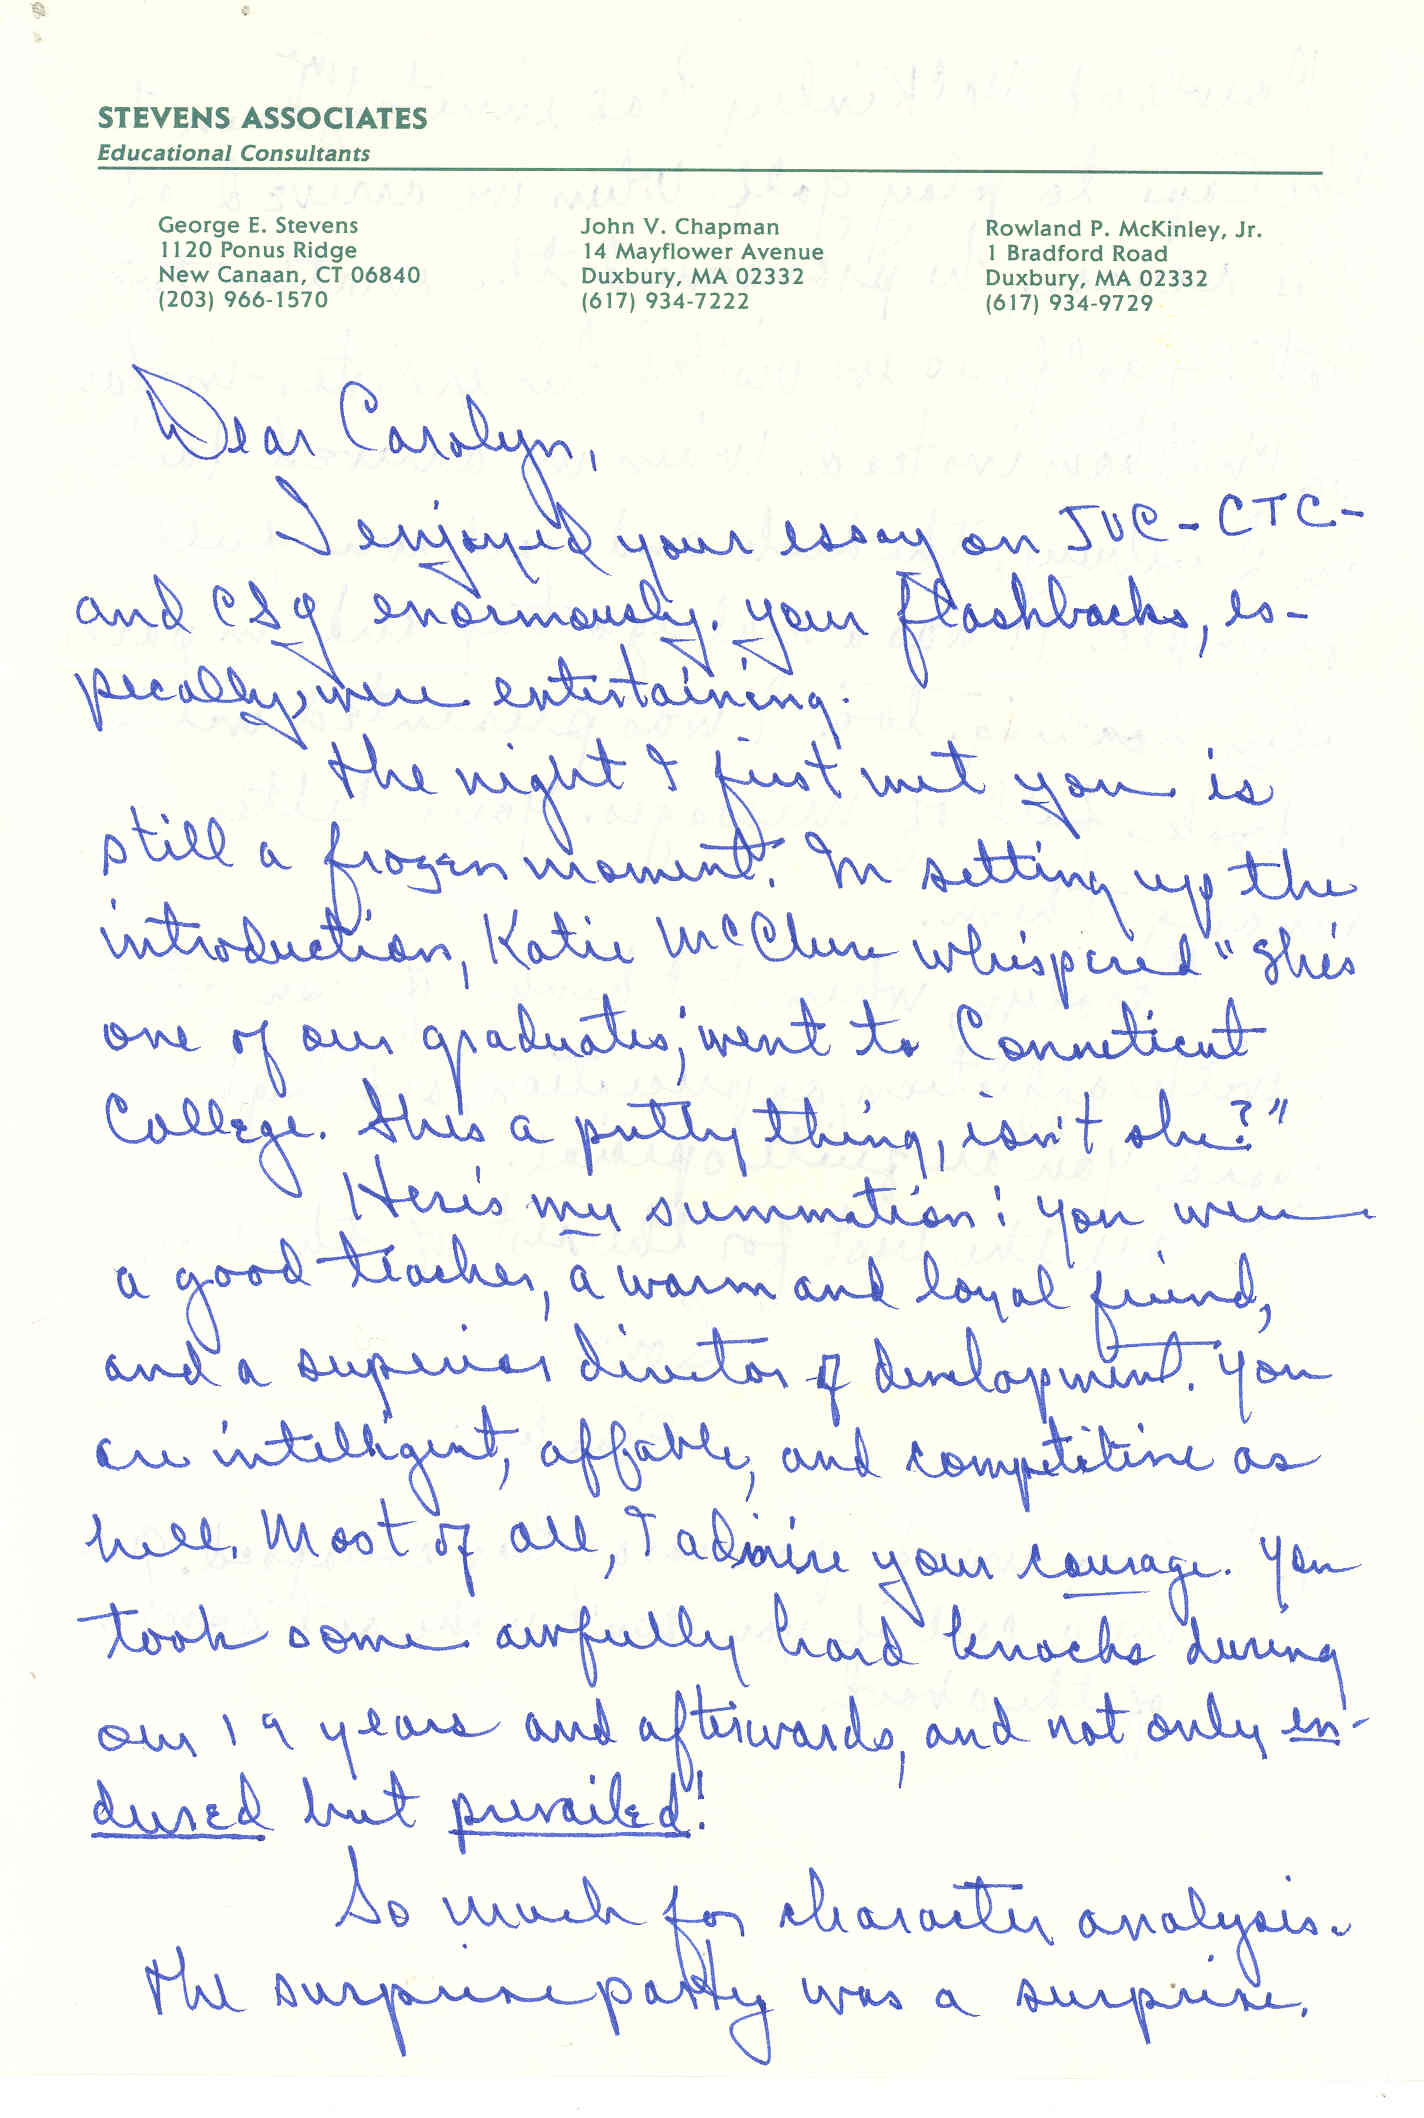 STEVENS ASSOCIATES
Educational Consultants
George E. Stevens
1120 Ponus Ridge
New Canaan, CT 06840
(203) 966-1570
John V. Chapman
14 Mayflower Avenue
Duxbury, MA 02332
(617) 934-7222
Rowland P. McKinley, Jr.
1 Bradford Road
Duxbury, MA 02332
(617) 934-9729
Dear Carolyn,
I enjoyed your essay on JVC - CTC -
and CSG enormously. Your flashbacks, es-
pecally, were entertaining.
The night I first met you is
still a frozen moment. In setting up the
introduction, Katie McClure whispered "She's
one of our graduates; went to Conneticut
College. She's a pretty thing, isn't she?"
Here's my summation: you were
a good teacher, a warm and loyal friend,
and a superior director of development. You
are intelligent, affable, and competitive as
hell. Most of all, I admire your courage. You
took some awfully hard knocks during
our 19 years and afterwards, and not only en-
dured but prevailed!
So much for character analysis.
The surprise party was a surprise.